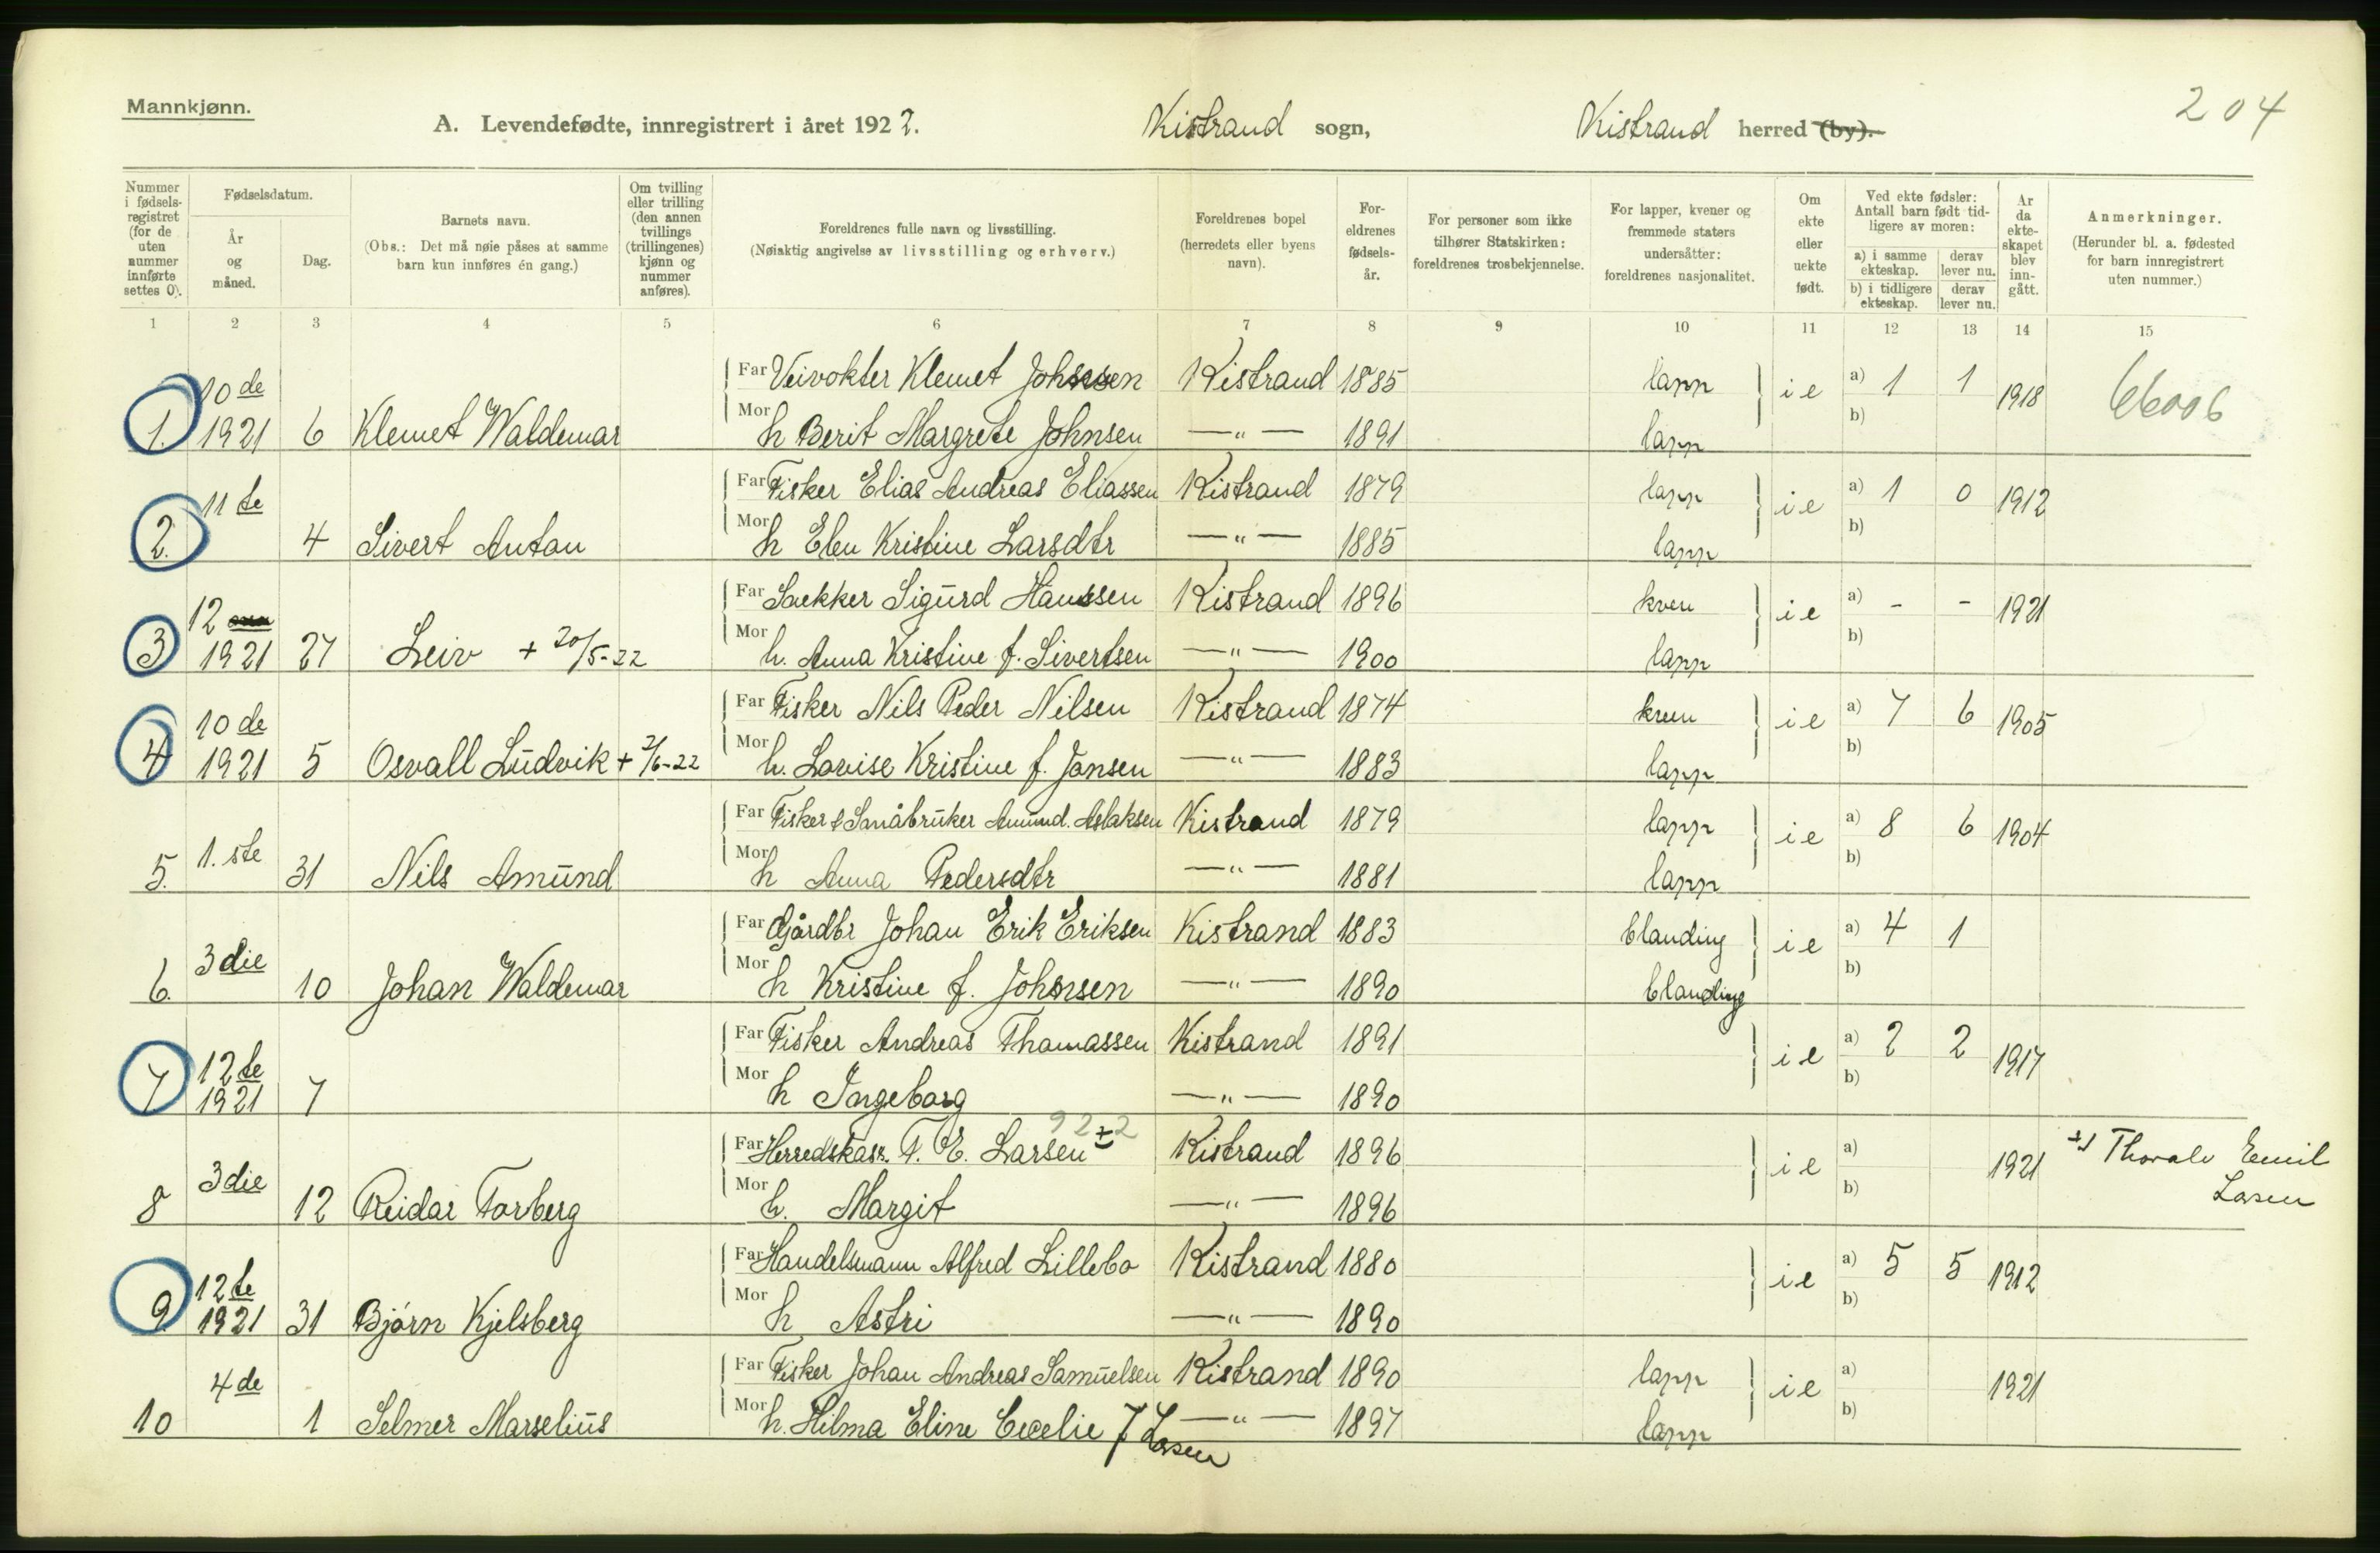 Mannkjønn.
204
A. Levendefødte, innregistrert i året 1922. Kistrand sogn, Kistrand herred (by).
Nummer i fødselsregistret (for de uten nummer innførte settes 0).
Fødselsdatum.
År og måned.
Dag.
Barnets navn.
(Obs.: Det må nøie påses at samme barn kun innføres én gang.)
Om tvilling eller trilling (den annen tvillings (trillingenes) kjønn og nummer anføres).
Foreldrenes fulle navn og livsstilling.
(Nøiaktig angivelse av livsstilling og erhverv.)
Foreldrenes bopel (herredets eller byens navn).
Foreldrenes fødselsår.
For personer som ikke tilhører Statskirken: foreldrenes trosbekjennelse.
For lapper, kvener og fremmede staters undersåtter: foreldrenes nasjonalitet.
Om ekte eller uekte født.
Ved ekte fødsler: Antall barn født tidligere av moren:
a) i samme ekteskap. derav lever nu.
b) i tidligere ekteskap. derav lever nu.
År da ekteskapet blev inngått.
Anmerkninger.
(Herunder bl. a. fødested for barn innregistrert uten nummer.)
1 2 3 4 5 6 7 8 9 10 11 12 13 14 15
10de Far Veivokter Klemet Johnsen Kistrand 1885 lapp i e a) 1 1 1918 66006
1. 1921 6 Klemet Waldemar Mor h Berit Margrete Johnsen —"— 1891 lapp b)
11te Far Fisker Elias Andreas Eliassen Kistrand 1879 lapp i e a) 1 0 1912
2. 4 Sivert Anton Mor h Elen Kristine Larsdtr —"— 1885 lapp b)
12 Far Snekker Sigurd Hanssen Kistrand 1896 kven i e a) - - 1921
3 1921 27 Leiv + 20/5-22 Mor h. Anna Kristine f. Sivertsen —"— 1900 lapp b)
10de Far Fisker Nils Peder Nilsen Kistrand 1874 kven i e a) 7 6 1905
4 1921 5 Osvall Ludvik + 2/6-22 Mor h. Lovise Kristine f. Jansen —"— 1883 lapp b)
1.ste Far Fisker & Småbruker Amund. Aslaksen Kistrand 1879 lapp i e a) 8 6 1904
5. 31 Nils Amund Mor h Anna Pedersdtr —"— 1881 lapp b)
3die Far Gjårdbr Johan Erik Eriksen Kistrand 1883 blanding i e a) 4 1
6. 10 Johan Waldemar Mor h Kristine f. Johnsen —"— 1890 blanding b)
12te Far Fisker Andreas Thomassen Kistrand 1891 i e a) 2 2 1917
7 1921 7 Mor h Ingeborg —"— 1890 b)
922
3die Far Herredskass. T. E. Larsen +) Kistrand 1896 i e a) 1921 +) Thoralv Emil
Larsen
8 12 Reidar Torberg Mor h. Margit —"— 1896 b)
12te Far Handelsmann Alfred Lillebo Kistrand 1880 i e a) 5 5 1912
9 1921 31 Bjørn Kjelsberg Mor h Astri —"— 1890 b)
4de Far Fisker Johan Andreas Samuelsen Kistrand 1890 lapp i e a) 1921
10 1 Selmer Marselius Mor h. Hilma Eline Cecelie f Larsen —"— 1897 lapp b)